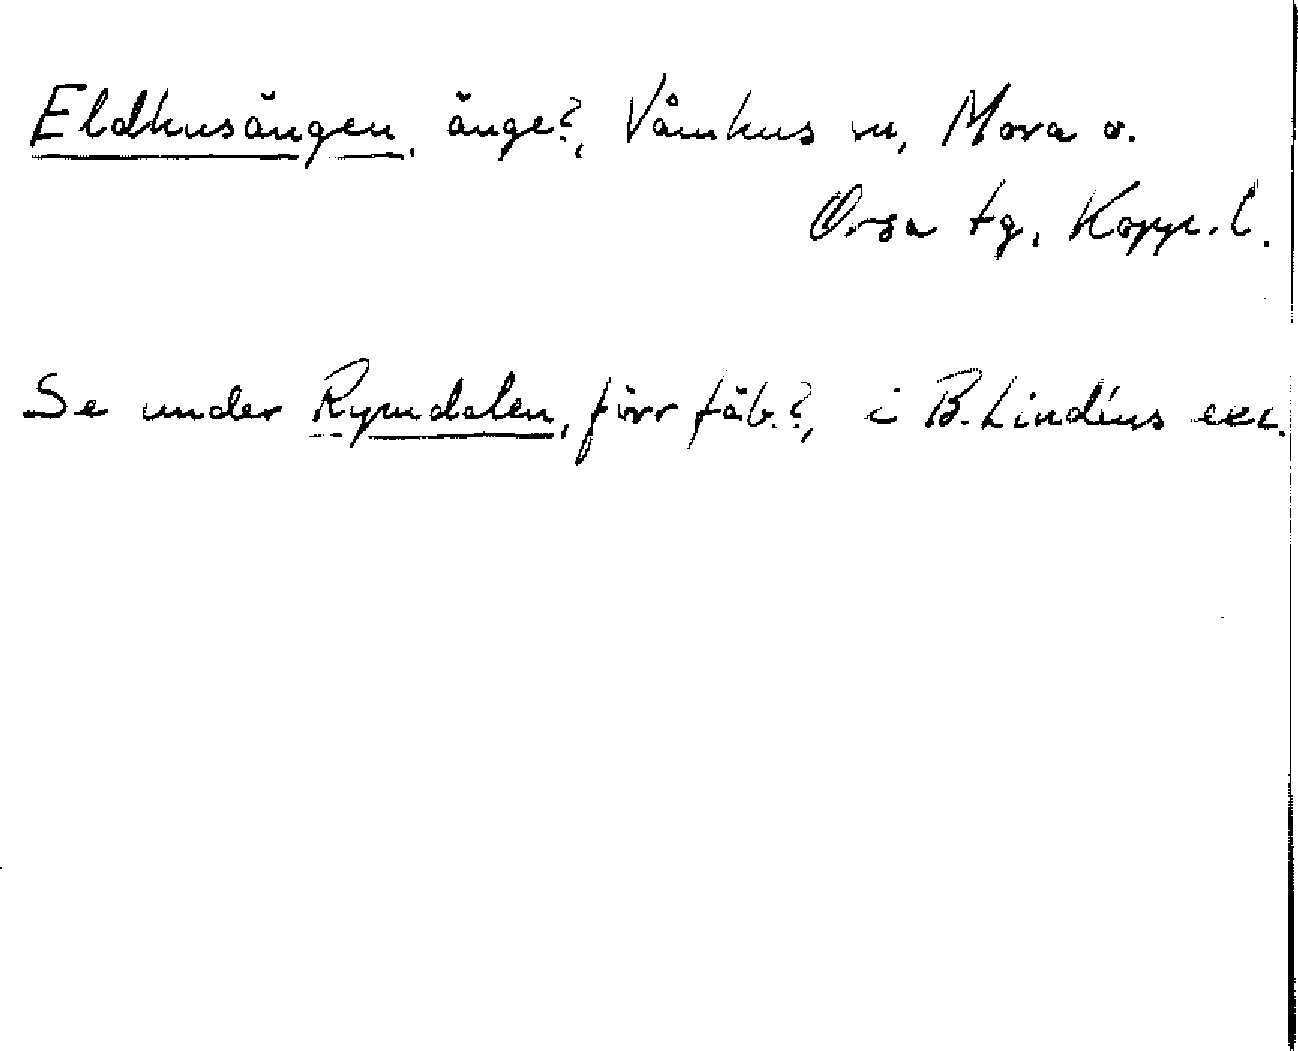 Eldhusängen, änge?, Våmhus sn, Mora o.
Orsa tg, Kopp. l.
Se under Rymdalen, förr fäb.?, i B. Lindéns exc.